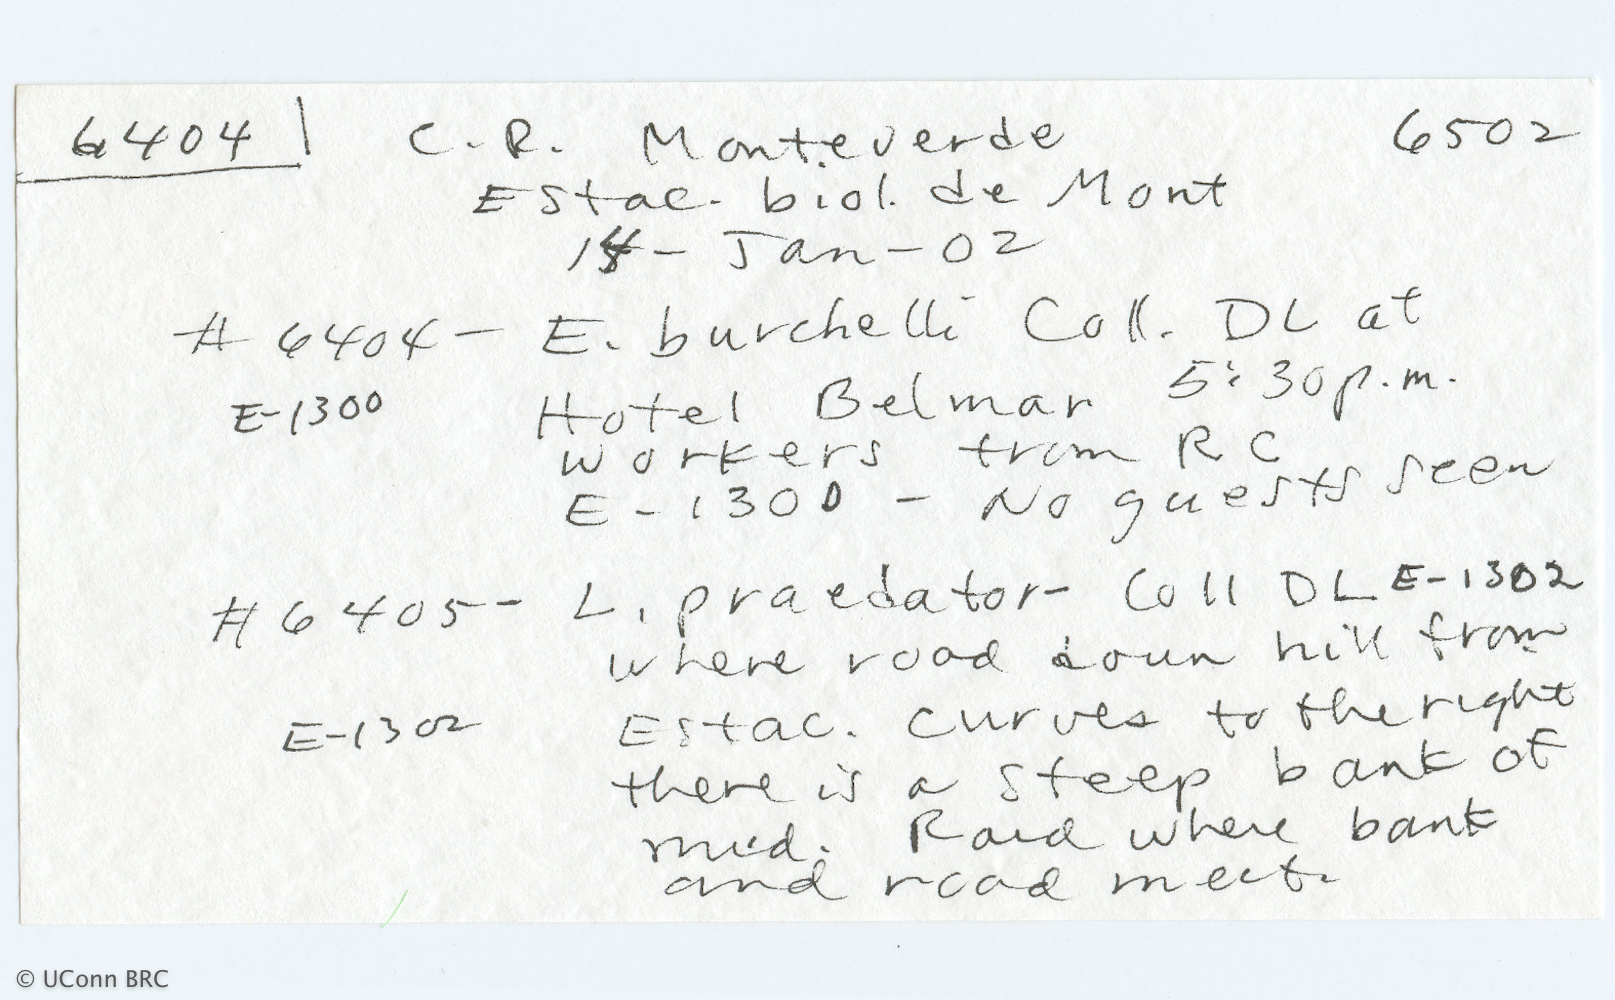 6404 C.R. Monteverde 6502
Estac. biol. de Mont
14-Jan-02
#6404- E. burchelli Coll. DL at
E-1300 Hotel Belmar 5:30p.m.
workers from RC
E-1300 - No guests seen
#6405- L. praedator- Coll DL E-1302
where road down hill from
E-1302 Estac. curves to the right
there is a steep bank of
mud. Raid where bank
and road meet.
© UConn BRC